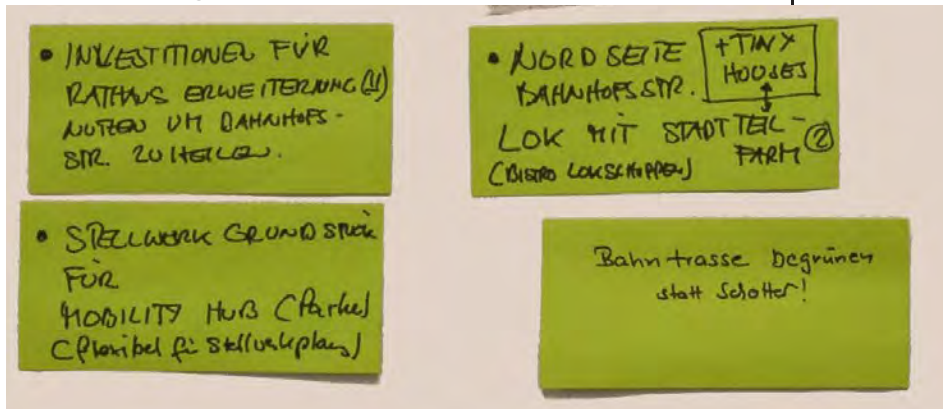 • INVESTITIONEN FÜR
RATHAUS ERWEITERUNG (!!)
NUTZEN UM BAHNHOFS-
STR. ZU HEILEN.
• NORDSEITE
BAHNHOFSSTR.
+ TINY
HOUSES
LOK MIT STADTTEIL-
FARM ②
(BISTRO LOKSCHUPPEN)
• STELLWERK GRUNDSTÜCK
FÜR
MOBILITY HUB (Parken)
(flexibel für Stellwerkplanz)
Bahntrasse begrünen
statt Schotter!